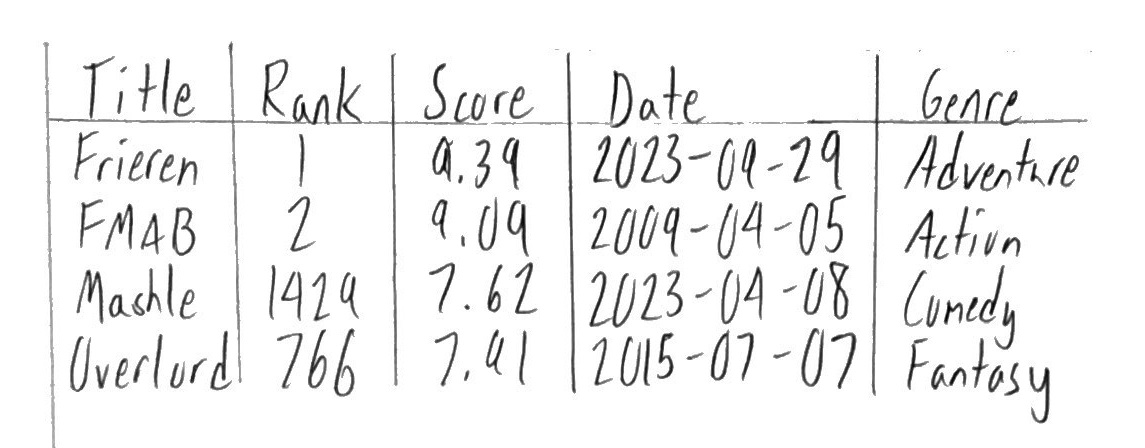 Title Rank Score Date Genre
Frieren 1 9.39 2023-09-29 Adventure
FMAB 2 9.09 2009-04-05 Action
Mashle 1429 7.62 2023-04-08 Comedy
Overlord 766 7.91 2015-07-07 Fantasy